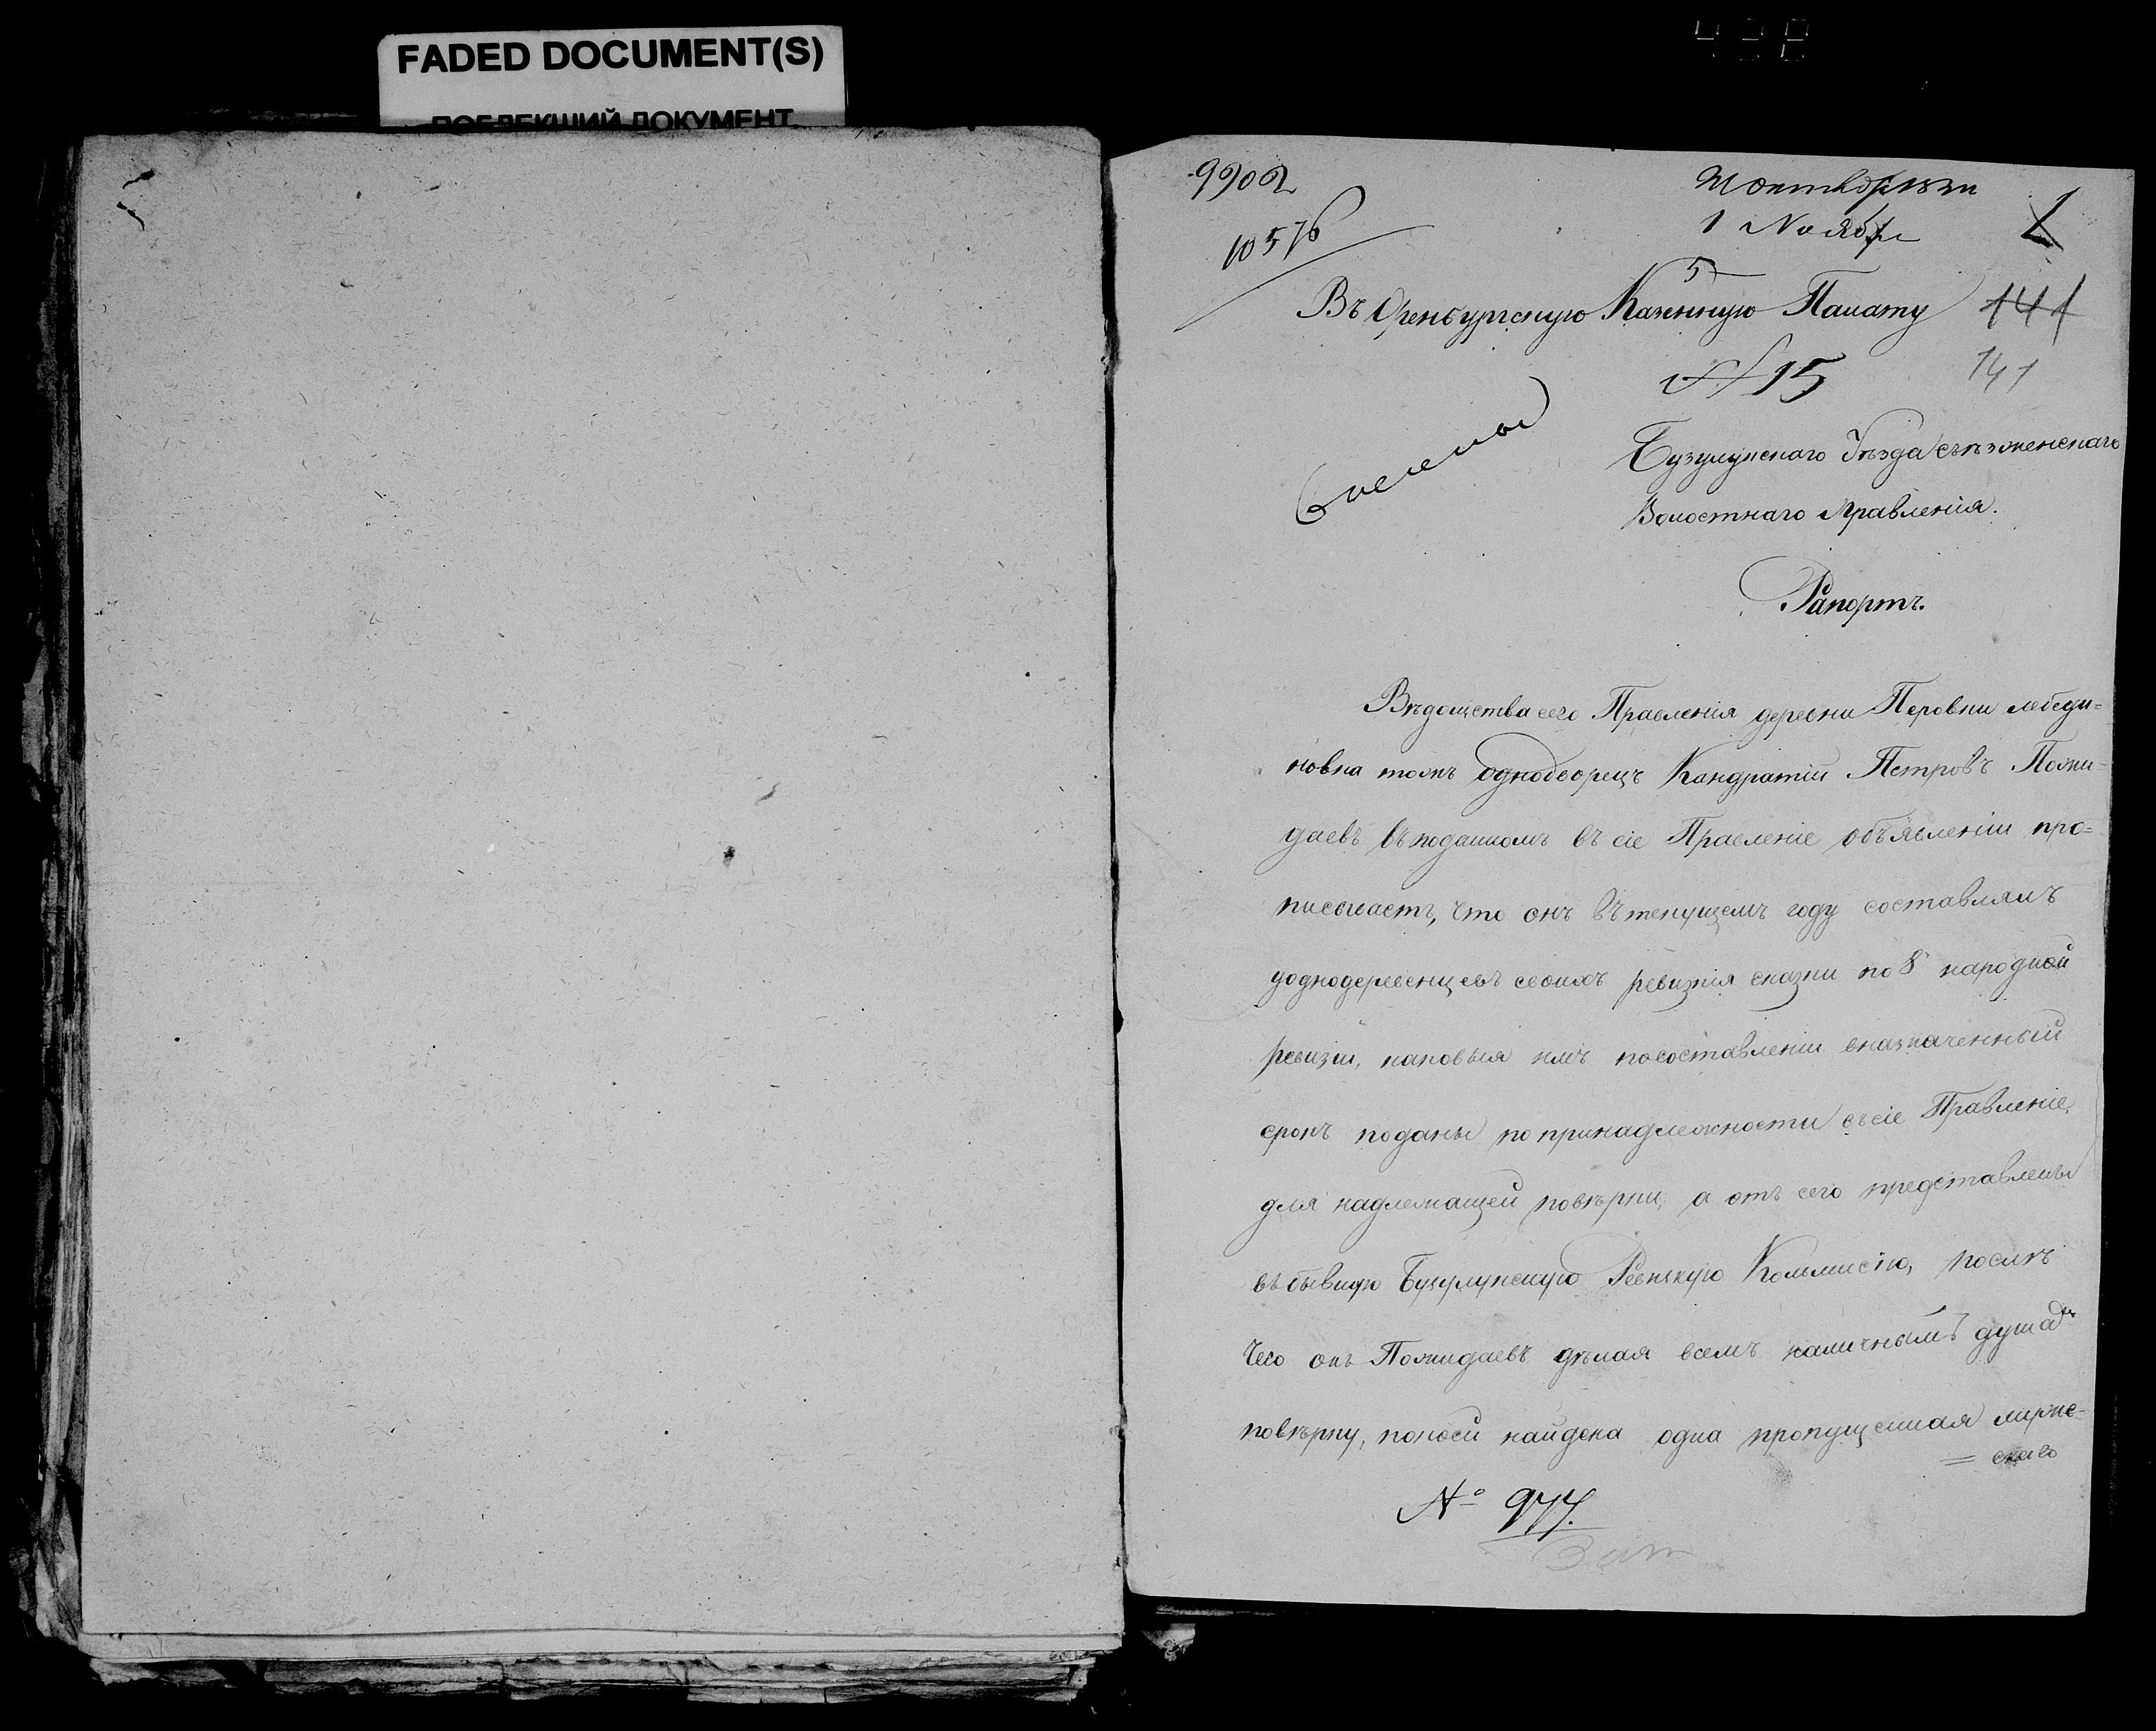 FADED DOCUMENT(S)
ПОБЛЕКШИЙ ДОКУМЕНТ
9902
1 Ноября
1
10576
5
Въ Оренбургскую Казенную Палату
141
№ 15
141
Бузулукскаго Уѣзда Съѣзженскаго
Волостнаго Правленія.
Рапортъ.
Вѣдомства сего Правленія деревни Перовки лебеди-
новка тожъ однодворецъ Кандратій Петровъ Пожи-
даевъ въ поданномъ въ сіе Правленіе объявленіи про-
писываетъ, что онъ въ текущемъ году составлялъ
уоднодеревенцевъ своихъ ревизкія сказки по 8 народной
ревизіи, каковыя имъ посоставленіи вназначенный
срокъ поданы по принадлежности въсіе Правленіе,
для надлежащей повѣрки, а отъ сего представлены
въ бывшую Бузулукскую Ревизкую Коммисію, послѣ
чего онъ Пожидаевъ дѣлая всемъ наличнымъ душамъ
повѣрку, покоей найдена одна пропущенная муже-
= скаго
№ 977.